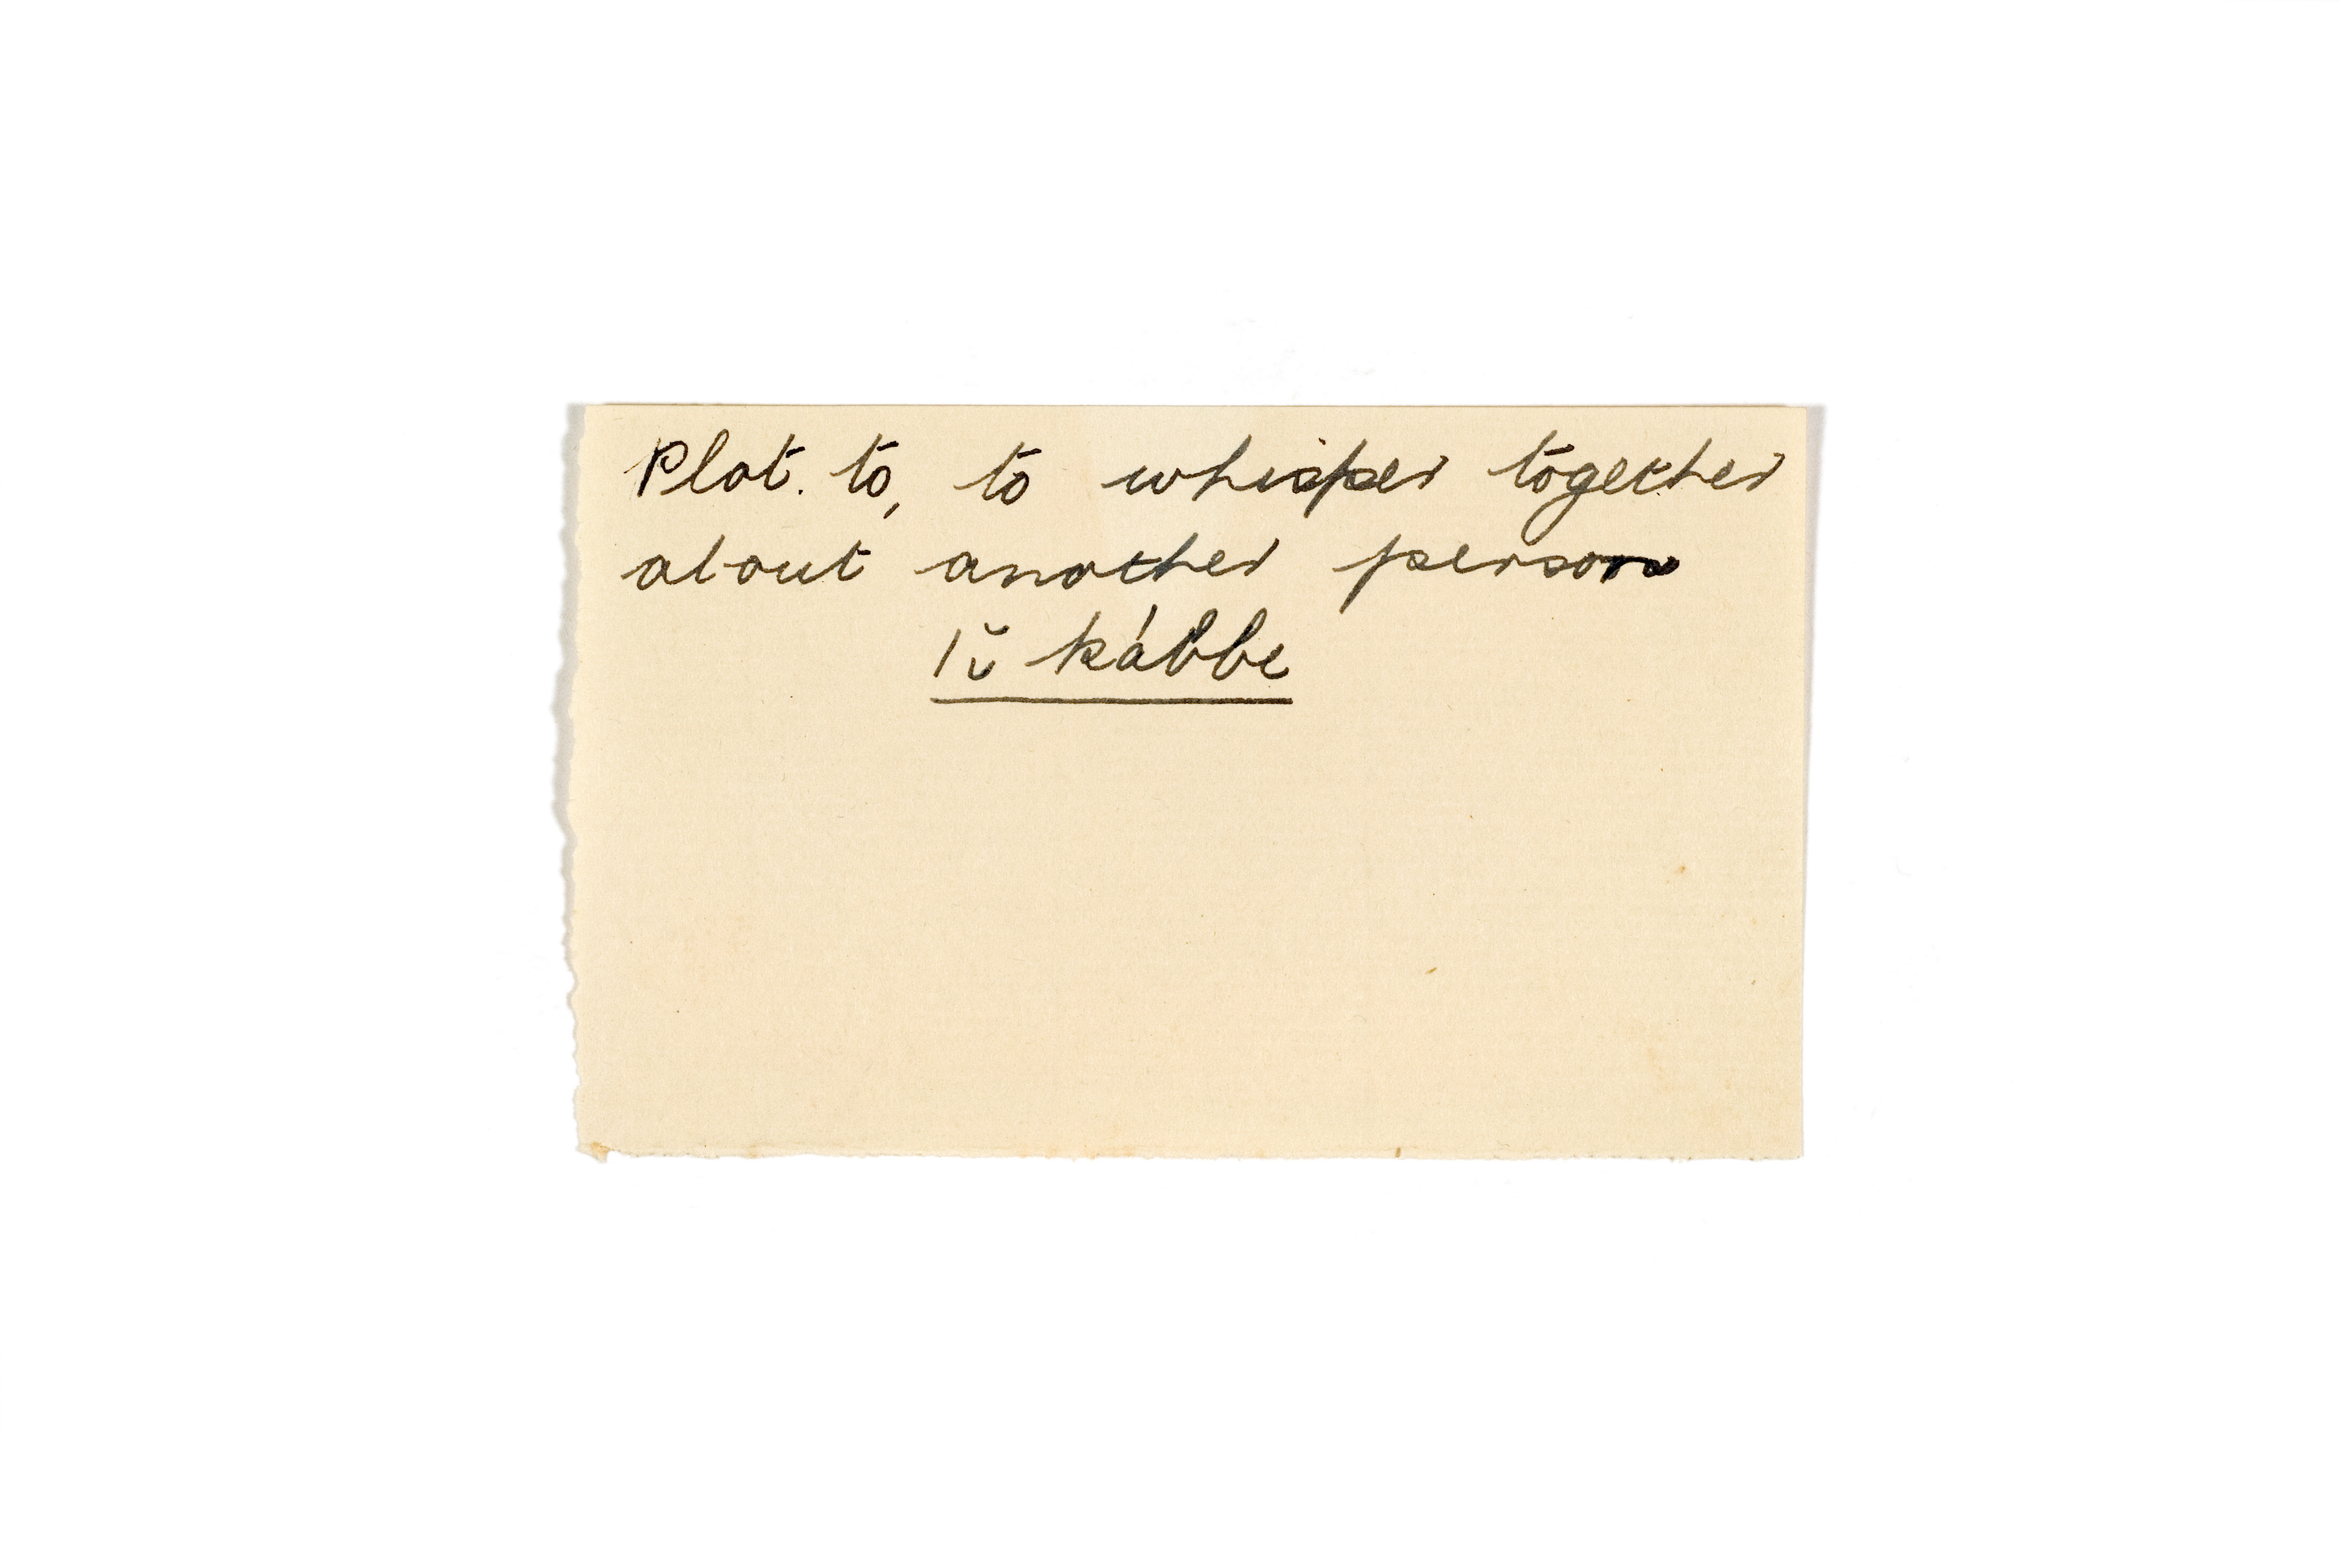 Plot. to, to whisper together
about another person
/ĭ kábbe